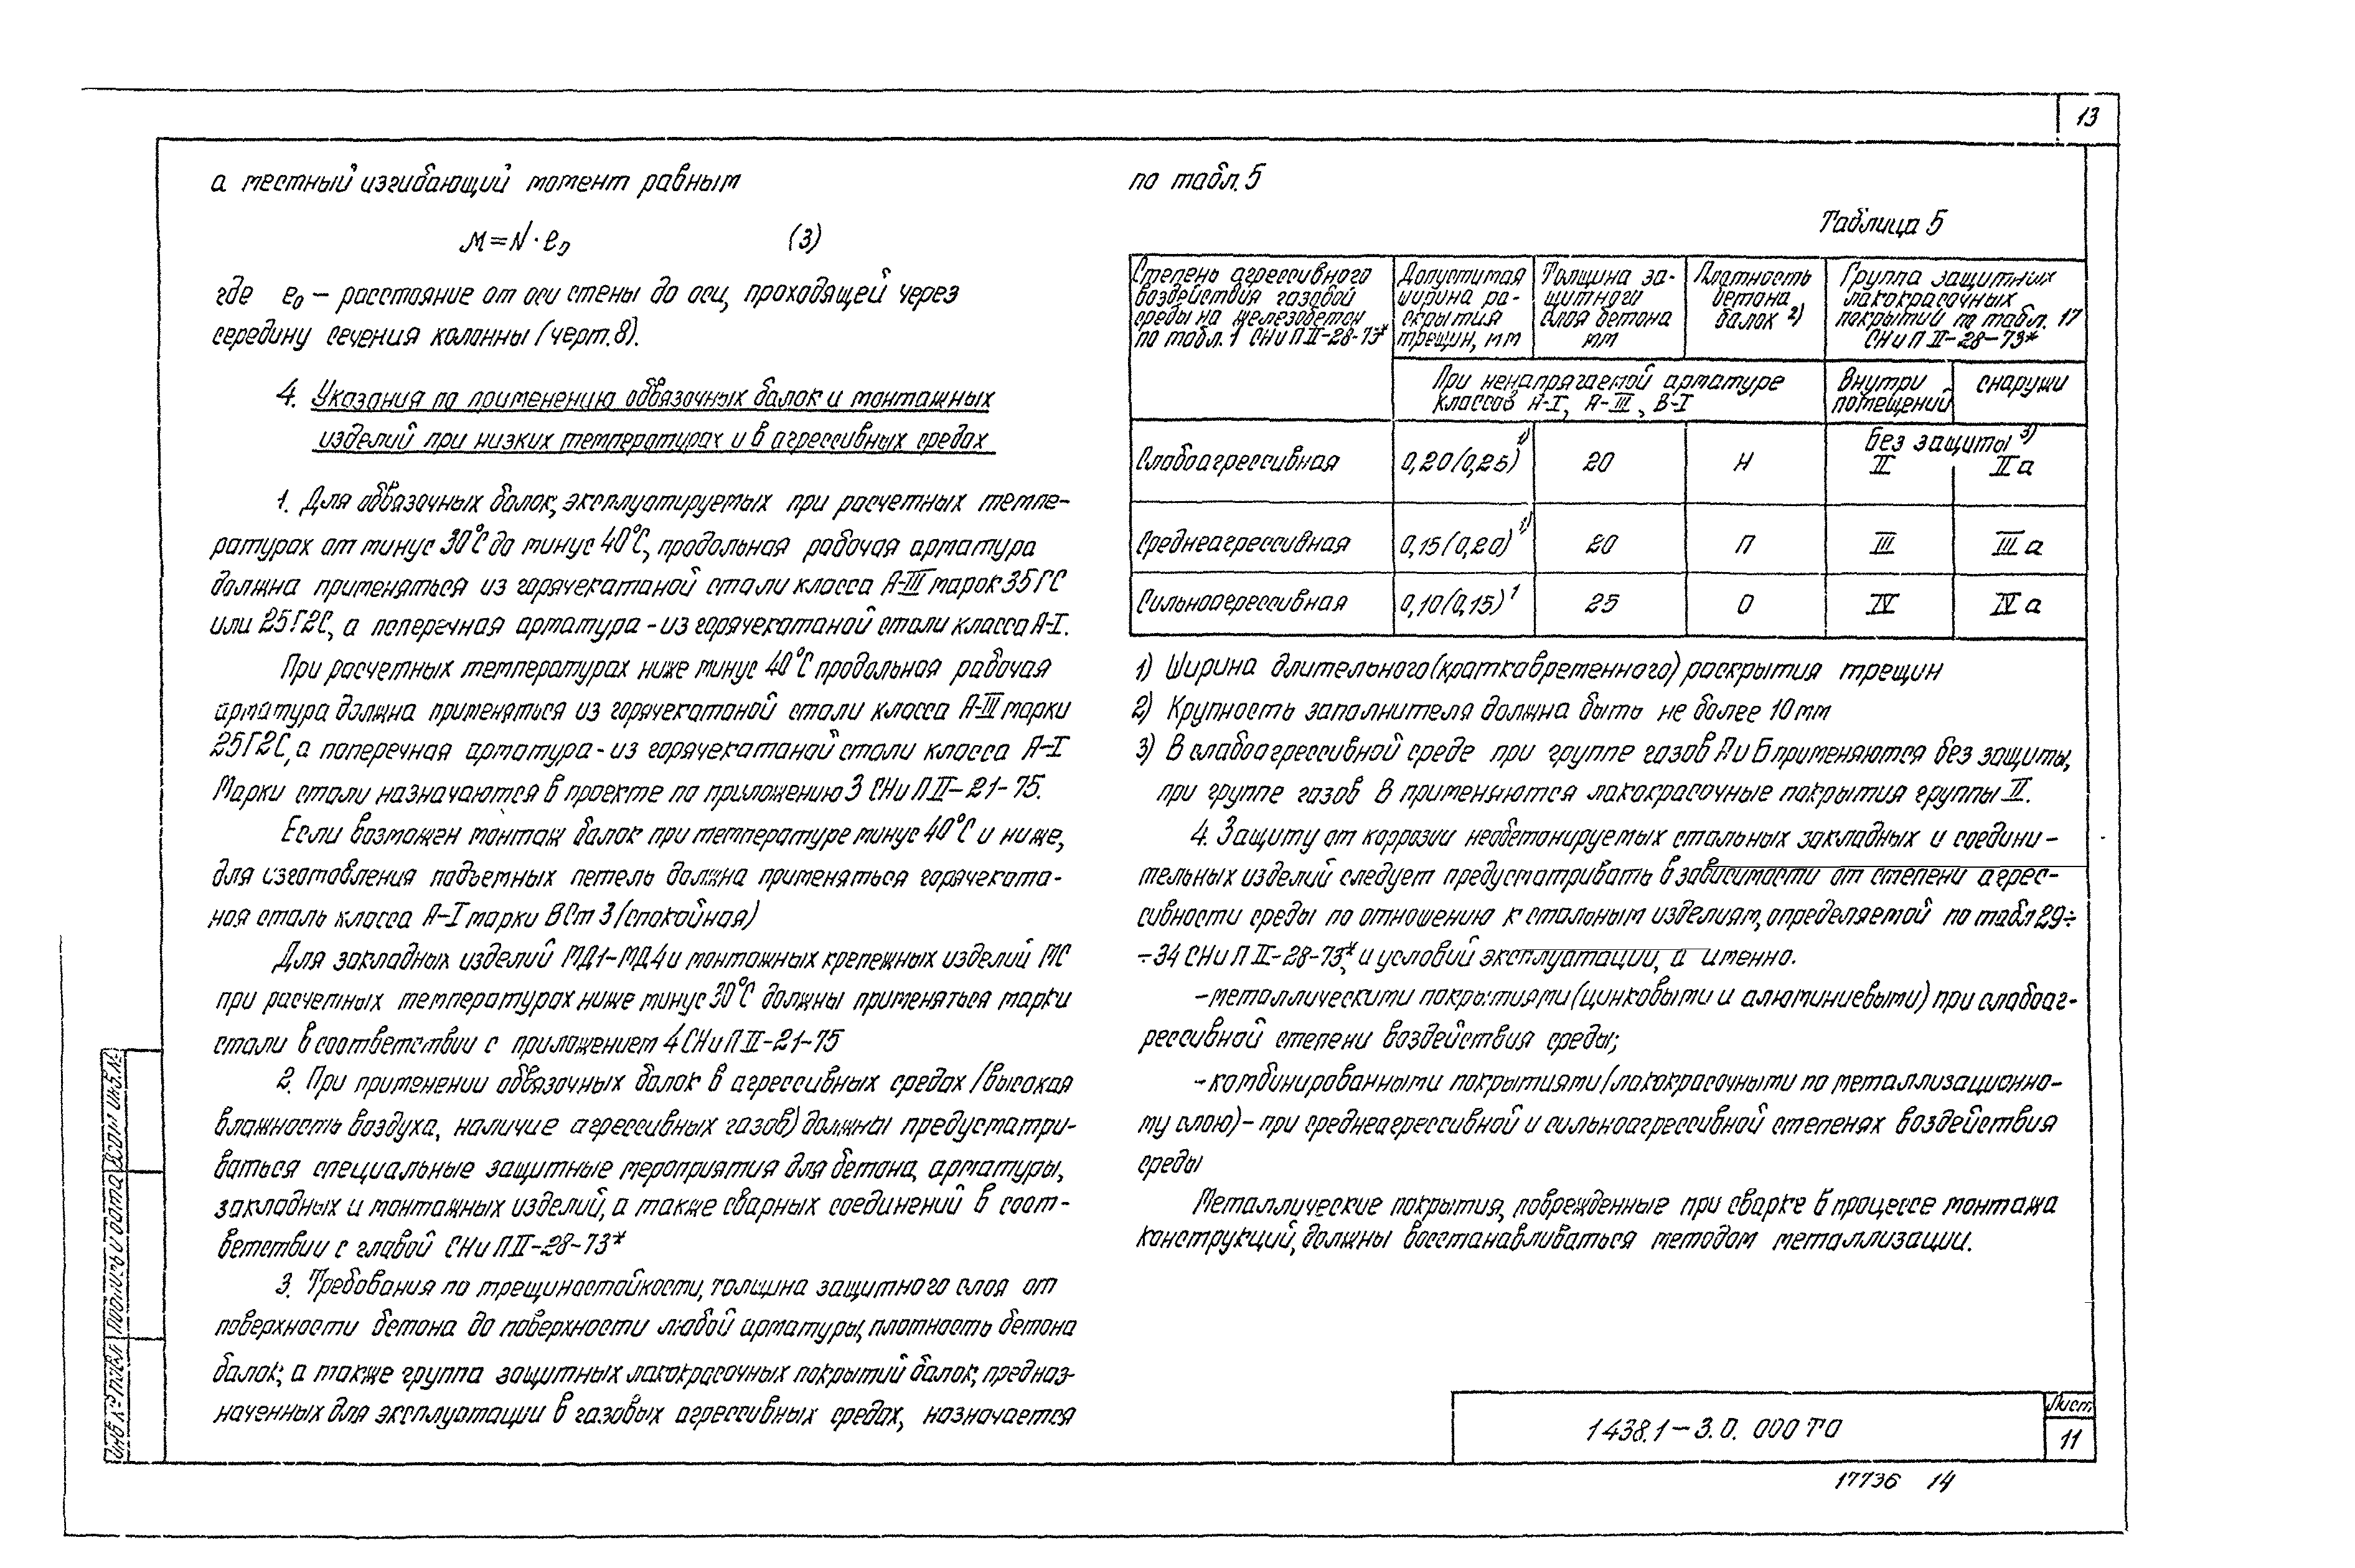 13
а местный изгибающий момент равным
М = N · e₀ (3)
где e₀ – расстояние от оси стены до оси, проходящей через
середину сечения колонны (черт. 8).
4. Указания по применению обвязочных балок и монтажных
изделий при низких температурах и в агрессивных средах
1. Для обвязочных балок, эксплуатируемых при расчетных темпе-
ратурах от минус 30°С до минус 40°С, продольная рабочая арматура
должна применяться из горячекатаной стали класса А-III марок 35ГС
или 25Г2С, а поперечная арматура - из горячекатаной стали класса А-I.
При расчетных температурах ниже минус 40°С продольная рабочая
арматура должна применяться из горячекатаной стали класса А-III марки
25Г2С, а поперечная арматура - из горячекатаной стали класса А-I
Марки стали назначаются в проекте по приложению 3 СНиП II-21-75.
Если возможен монтаж балок при температуре минус 40°С и ниже,
для изготовления подъемных петель должна применяться горячеката-
ная сталь класса А-I марки ВСт 3 (спокойная)
Для закладных изделий МД1-МД4 и монтажных крепежных изделий МС
при расчетных температурах ниже минус 30°С должны применяться марки
стали в соответствии с приложением 4 СНиП II-21-75
2. При применении обвязочных балок в агрессивных средах (высокая
влажность воздуха, наличие агрессивных газов) должны предусматри-
ваться специальные защитные мероприятия для бетона, арматуры,
закладных и монтажных изделий, а также сварных соединений в соот-
ветствии с главой СНиП II-28-73*
3. Требования по трещиностойкости, толщина защитного слоя от
поверхности бетона до поверхности любой арматуры, плотность бетона
балок, а также группа защитных лакокрасочных покрытий балок, предназ-
наченных для эксплуатации в газовых агрессивных средах, назначается
по табл. 5
Таблица 5
Степень агрессивного
воздействия газовой
среды на железобетон
по табл. 1 СНиП II-28-73*
Допустимая
ширина ра-
скрытия
трещин, мм
Толщина за-
щитного
слоя бетона
мм
Плотность
бетона
балок 2)
Группа защитных
лакокрасочных
покрытий по табл. 17
СНиП II-28-73*
При ненапрягаемой арматуре
классов А-I, А-III, В-I
Внутри
помещений
снаружи
Слабоагрессивная 0,20(0,25) 1) 20 Н Без защиты 3)
II IIа
Среднеагрессивная 0,15(0,20) 1) 20 П III IIIа
Сильноагрессивная 0,10(0,15) 1 25 О IV IVа
1) Ширина длительного (кратковременного) раскрытия трещин
2) Крупность заполнителя должна быть не более 10 мм
3) В слабоагрессивной среде при группе газов А и Б применяются без защиты,
при группе газов В применяются лакокрасочные покрытия группы II.
4. Защиту от коррозии необетонируемых стальных закладных и соедини-
тельных изделий следует предусматривать в зависимости от степени агрес-
сивности среды по отношению к стальным изделиям, определяемой по табл 29÷
÷34 СНиП II-28-73*, и условий эксплуатации, а именно.
- металлическими покрытиями (цинковыми и алюминиевыми) при слабоаг-
рессивной степени воздействия среды;
- комбинированными покрытиями (лакокрасочными по металлизационно-
му слою) - при среднеагрессивной и сильноагрессивной степенях воздействия
среды
Металлические покрытия, поврежденные при сварке в процессе монтажа
конструкций, должны восстанавливаться методом металлизации.
Взам инв. №
Подпись и дата
Инв № подл
1438.1-3.0. 000 ТО
Лист
11
17736 14